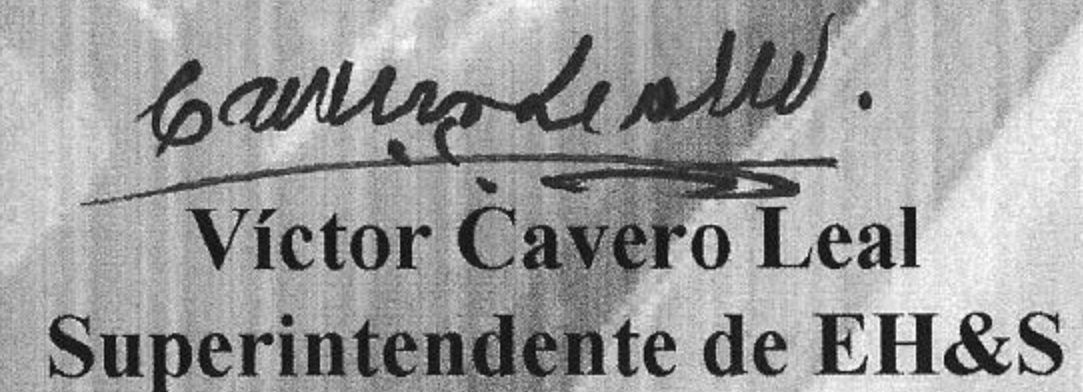 Cavero Leal V.
Víctor Cavero Leal
Superintendente de EH&S